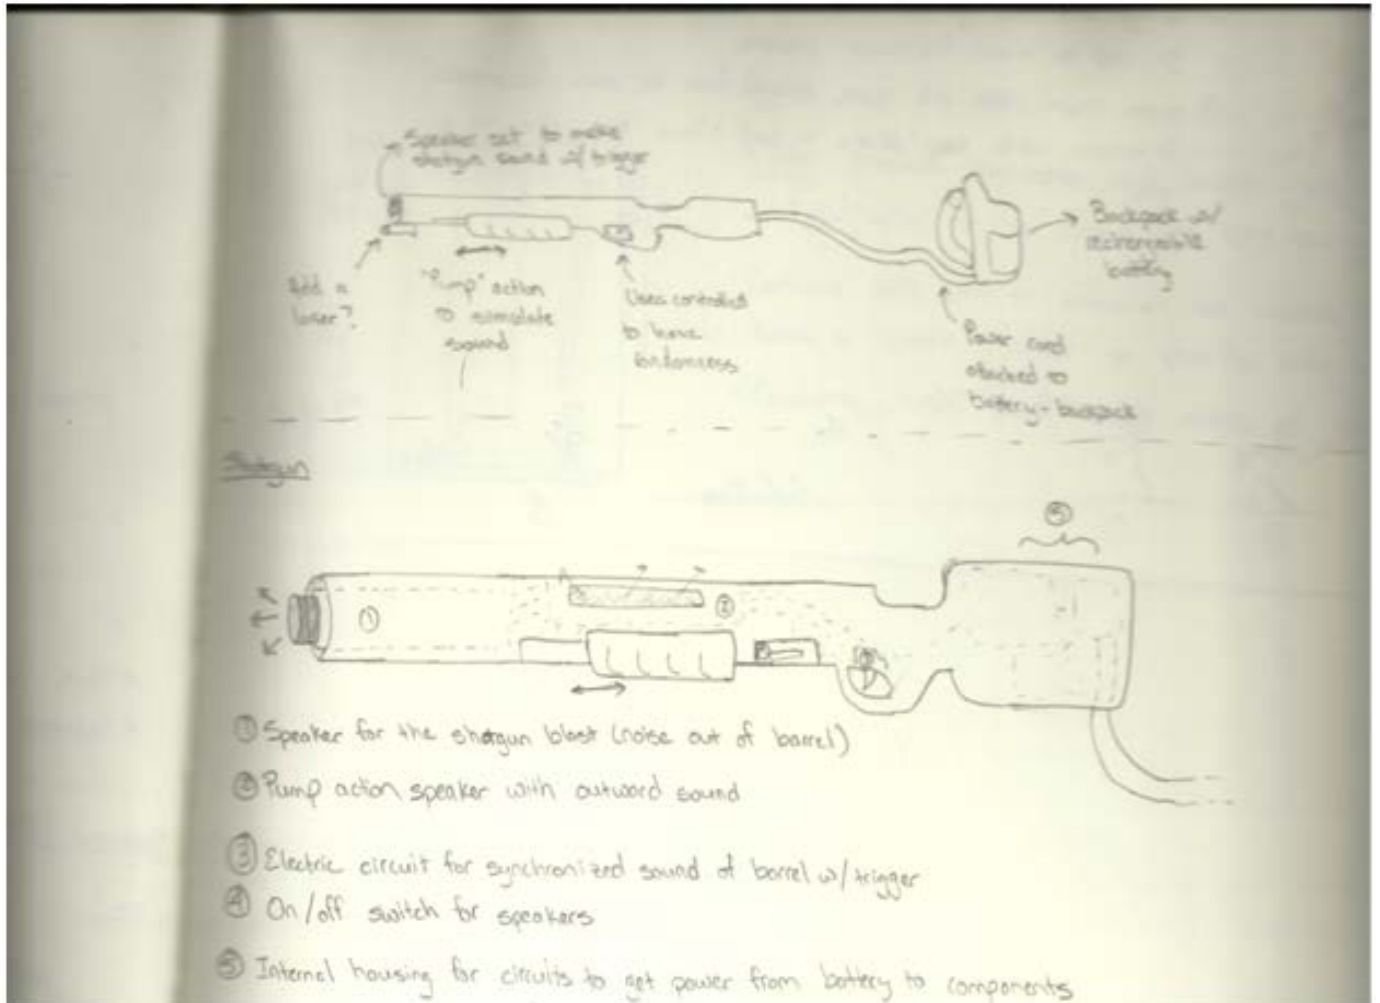 Speaker set to make
shotgun sound w/ trigger
Backpack w/
rechargeable
battery
Add a
laser?
"Pump" action
to simulate
sound
Uses controlled
to have
Power cord
attached to
battery-backpack
Shotgun
5
1
2
① Speaker for the shotgun blast (noise out of barrel)
② Pump action speaker with outward sound
③ Electric circuit for synchronized sound of barrel w/ trigger
④ On/off switch for speakers
⑤ Internal housing for circuits to get power from battery to components